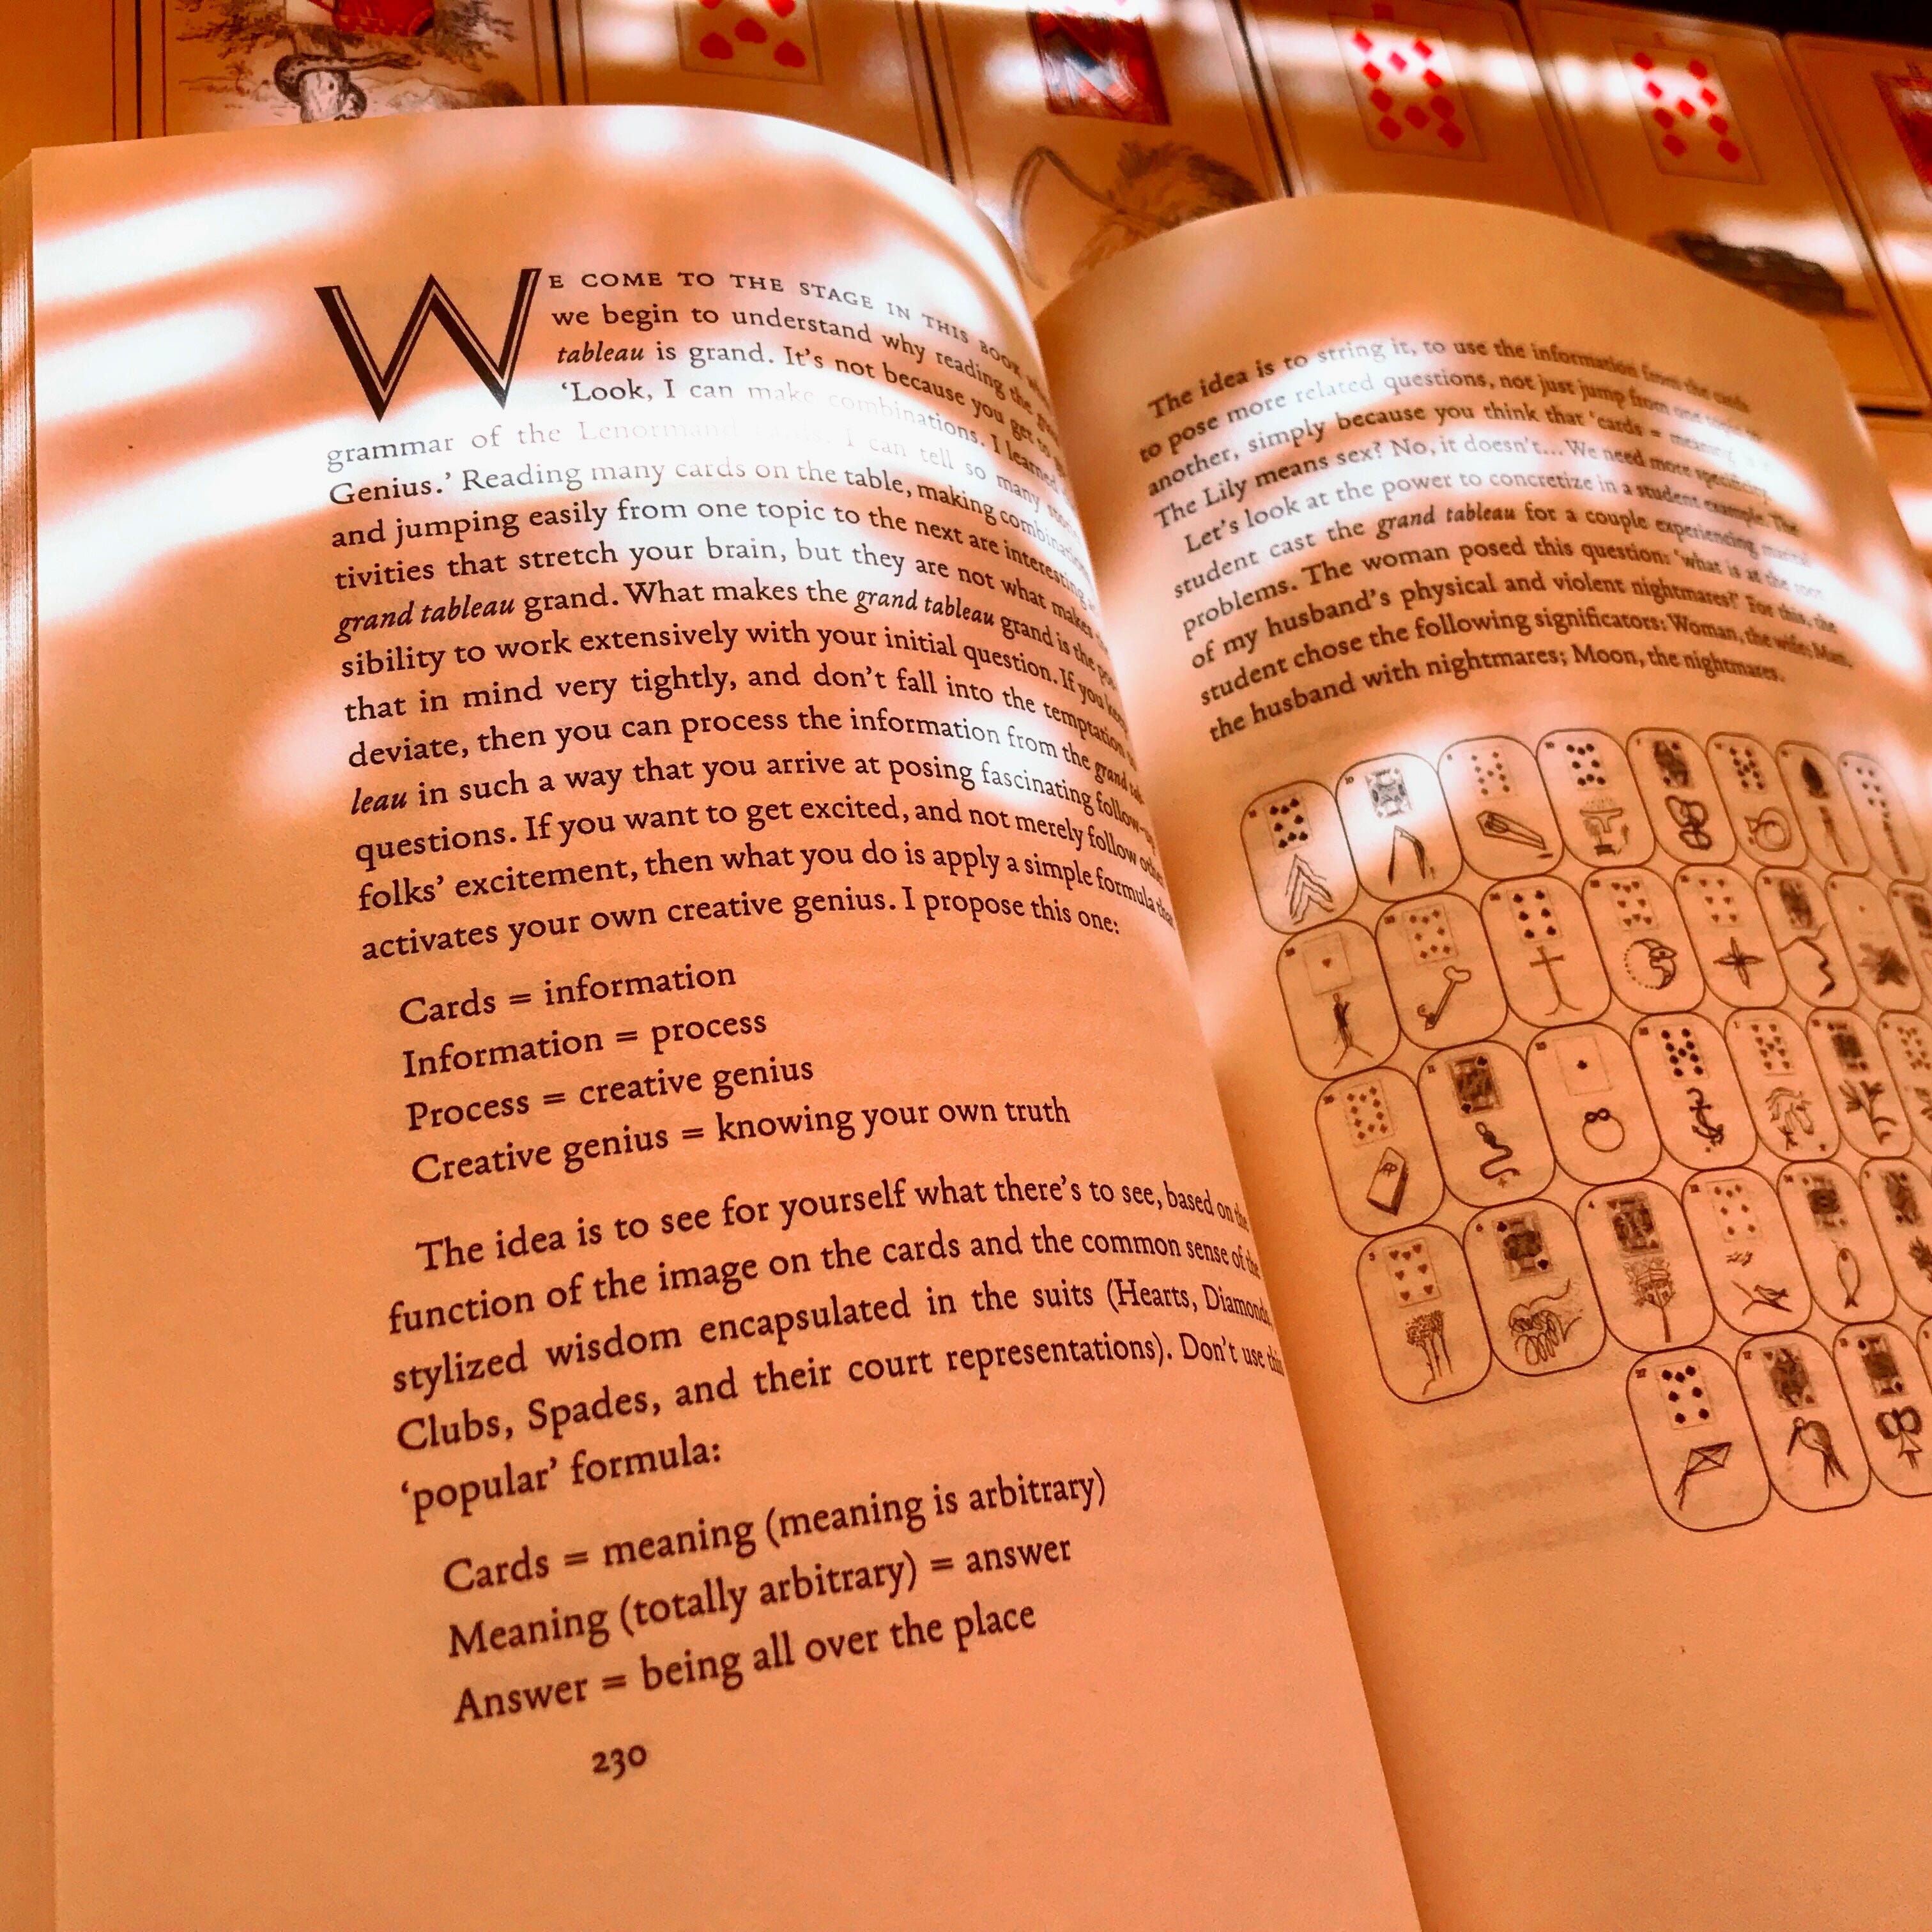 WE COME TO THE STAGE IN THIS BOOK
we begin to understand why reading the
tableau is grand. It's not because you get to
‘Look, I can make combinations. I learned
grammar of the Lenormand cards. I can tell so many
Genius.’ Reading many cards on the table, making
and jumping easily from one topic to the next are interesting
tivities that stretch your brain, but they are not what makes
grand tableau grand. What makes the grand tableau grand is the pos-
sibility to work extensively with your initial question. If you keep
that in mind very tightly, and don't fall into the temptation
deviate, then you can process the information from the grand tab-
leau in such a way that you arrive at posing fascinating follow-up
questions. If you want to get excited, and not merely follow other
folks' excitement, then what you do is apply a simple formula that
activates your own creative genius. I propose this one:
Cards = information
Information = process
Process = creative genius
Creative genius = knowing your own truth
The idea is to see for yourself what there's to see, based on the
function of the image on the cards and the common sense of the
stylized wisdom encapsulated in the suits (Hearts, Diamonds,
Clubs, Spades, and their court representations). Don't use this
‘popular’ formula:
Cards = meaning (meaning is arbitrary)
Meaning (totally arbitrary) = answer
Answer = being all over the place
230
The idea is to string it, to use the information from the cards
to pose more related questions, not just jump from one topic to
another, simply because you think that ‘cards = meaning.’
The Lily means sex? No, it doesn't... We need more specificity.
Let's look at the power to concretize in a student example. The
student cast the grand tableau for a couple experiencing marital
problems. The woman posed this question: ‘what is at the root
of my husband's physical and violent nightmares?’ For this, the
student chose the following significators: Woman, the wife; Man,
the husband with nightmares; Moon, the nightmares.